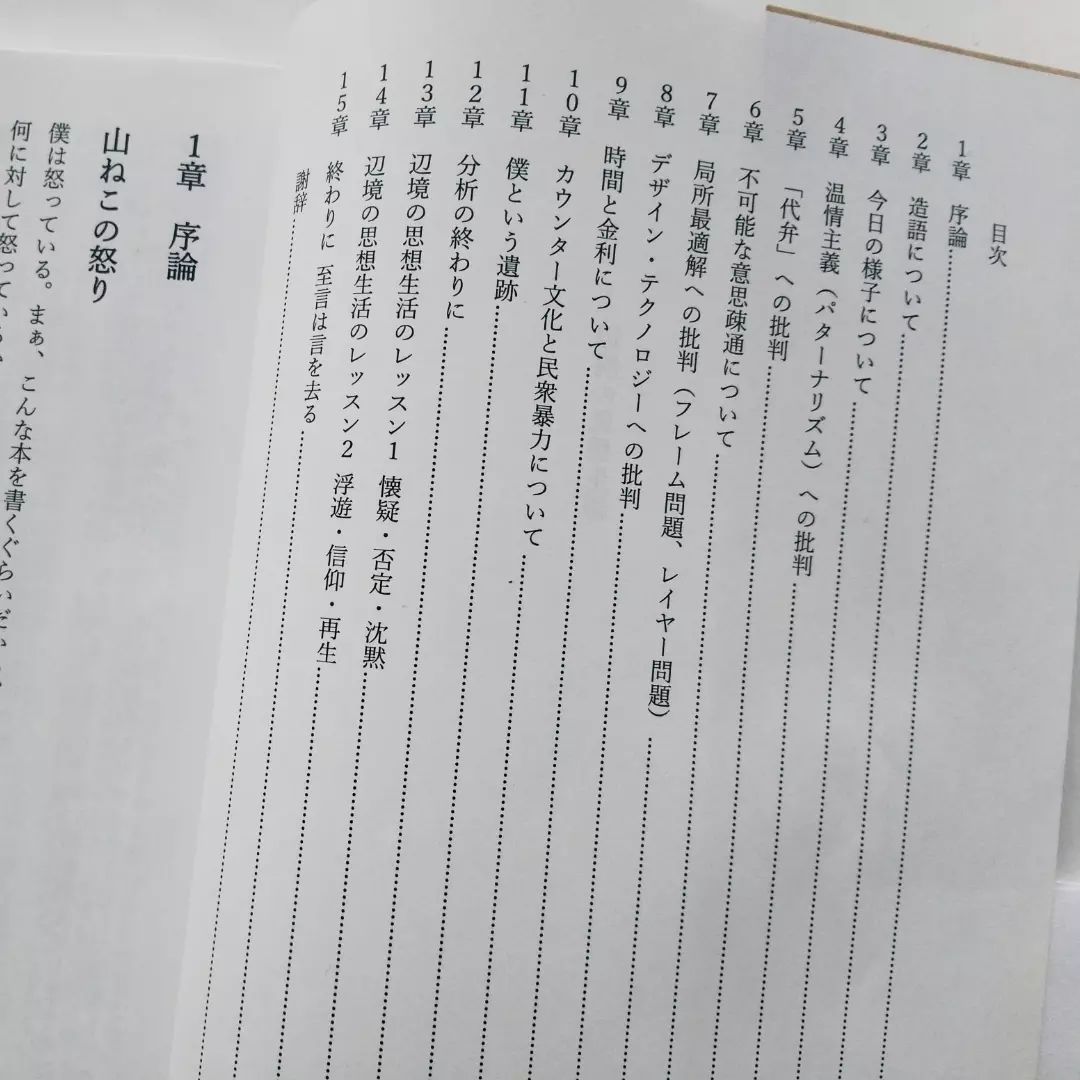 目次
1章 序論
2章 造語について
3章 今日の様子について
4章 温情主義（パターナリズム）への批判
5章 「代弁」への批判
6章 不可能な意思疎通について
7章 局所最適解への批判（フレーム問題、レイヤー問題）
8章 デザイン・テクノロジーへの批判
9章 時間と金利について
10章 カウンター文化と民衆暴力について
11章 僕という遺跡
12章 分析の終わりに
13章 辺境の思想生活のレッスン1 懐疑・否定・沈黙
14章 辺境の思想生活のレッスン2 浮遊・信仰・再生
15章 終わりに 至言は言を去る
謝辞
1章 序論
山ねこの怒り
僕は怒っている。まぁ、こんな本を書くぐらいだか
何に対して怒ってい